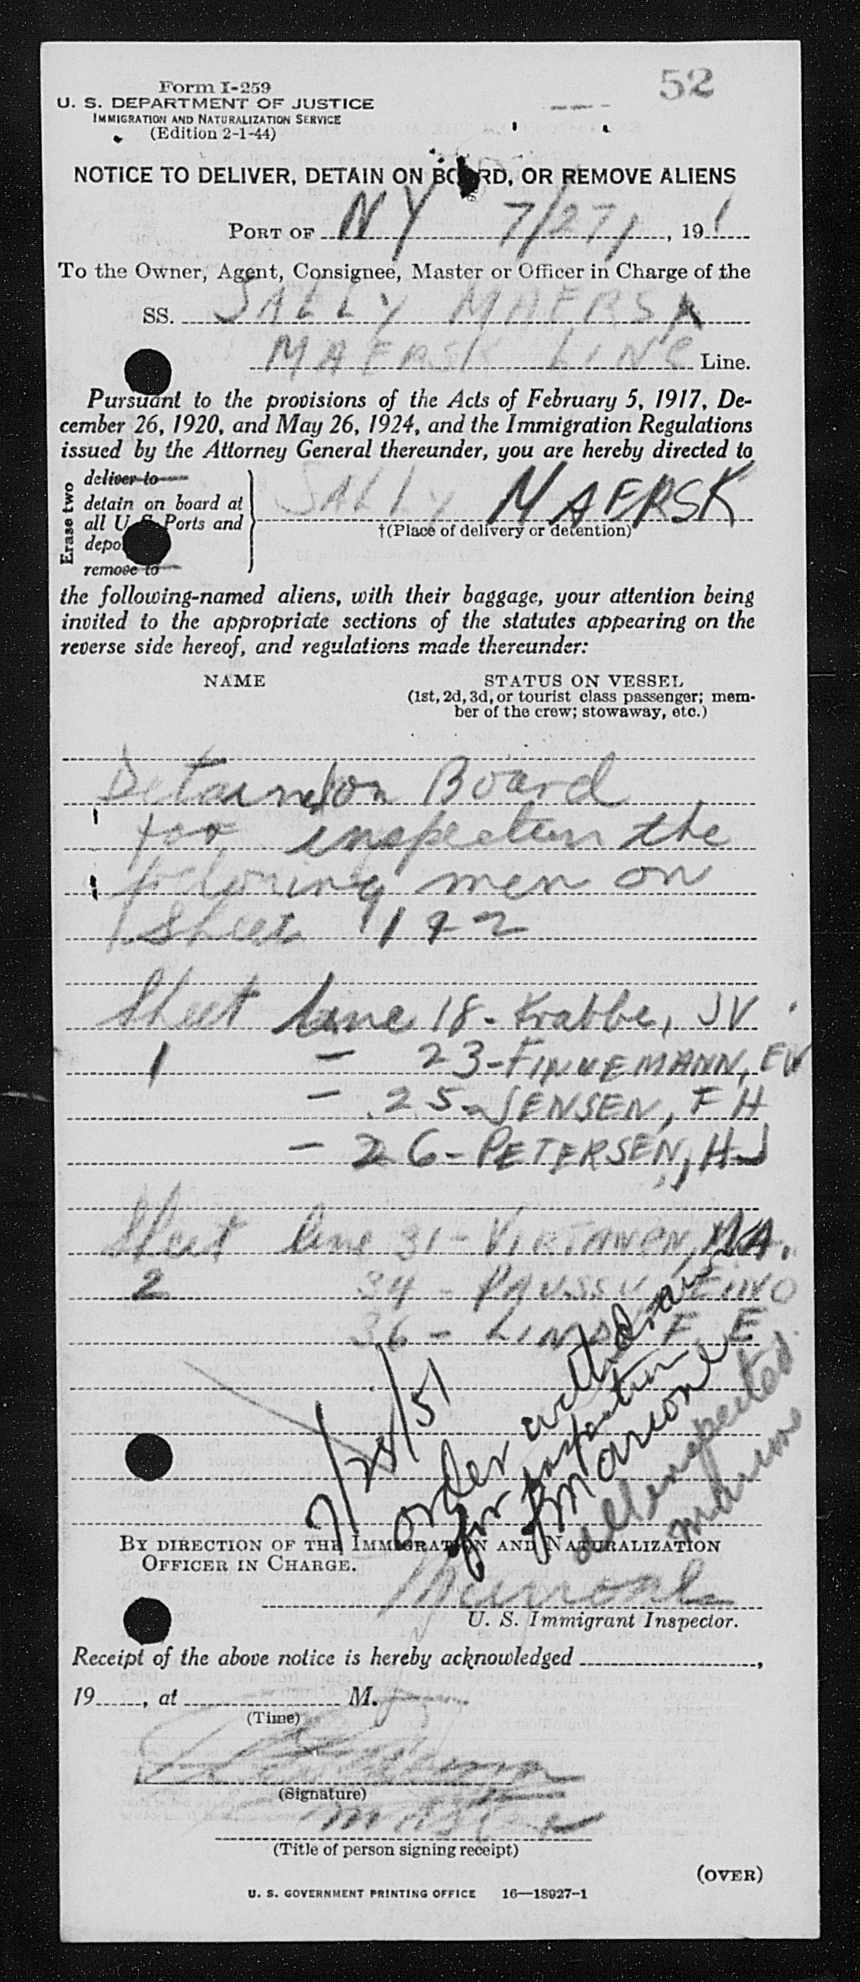 52
Form I-259
U. S. DEPARTMENT OF JUSTICE
IMMIGRATION AND NATURALIZATION SERVICE
(Edition 2-1-44)
NOTICE TO DELIVER, DETAIN ON BOARD, OR REMOVE ALIENS
PORT OF NY 7/27/, 191
To the Owner, Agent, Consignee, Master or Officer in Charge of the
SS. SALLY MAERSK
MAERSK LINE Line.
Pursuant to the provisions of the Acts of February 5, 1917, De-
cember 26, 1920, and May 26, 1924, and the Immigration Regulations
issued by the Attorney General thereunder, you are hereby directed to
Erase two
deliver to
detain on board at
all U. S. Ports and
depo
remove to
SALLY MAERSK
†(Place of delivery or detention)
the following-named aliens, with their baggage, your attention being
invited to the appropriate sections of the statutes appearing on the
reverse side hereof, and regulations made thereunder:
NAME STATUS ON VESSEL
(1st, 2d, 3d, or tourist class passenger; mem-
ber of the crew; stowaway, etc.)
Detain on Board
for inspection the
following men on
Sheet 1 & 2
Sheet line 18 - Krabbe, JV
1 - 23 - FINNEMANN, EW
- 25 - JENSEN, F H
- 26 - PETERSEN, HJ
Sheet line 31 - VIRTANEN, MA.
2 34 - PAUSSU EINO
36 - F. E
7/28/51
order withdrawn
for inspection
all inspected
BY DIRECTION OF THE IMMIGRATION AND NATURALIZATION
OFFICER IN CHARGE.
U. S. Immigrant Inspector.
Receipt of the above notice is hereby acknowledged ,
19 , at M.
(Time)
(Signature)
Master
(Title of person signing receipt)
(OVER)
U. S. GOVERNMENT PRINTING OFFICE 16—18927-1